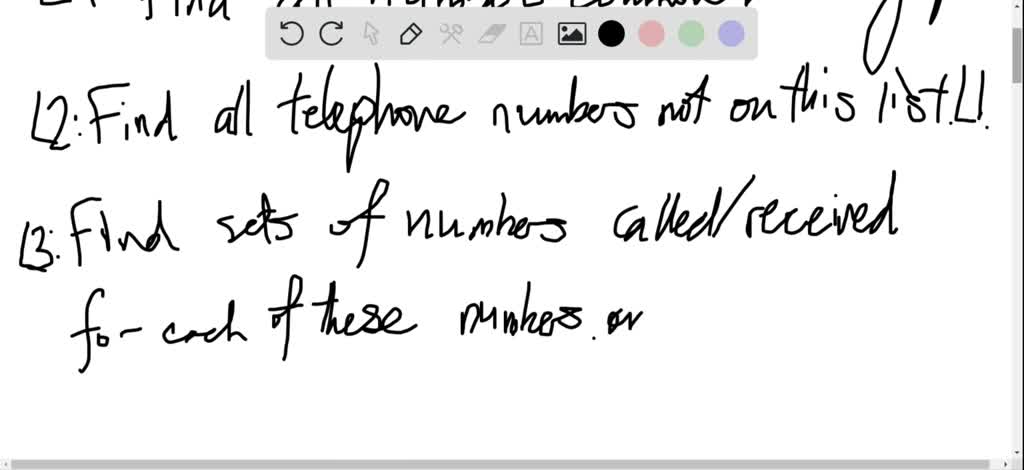 Find all numbers common
L2: Find all telephone numbers not on this list L1.
L3: Find sets of numbers called/received
for each of these numbers. on